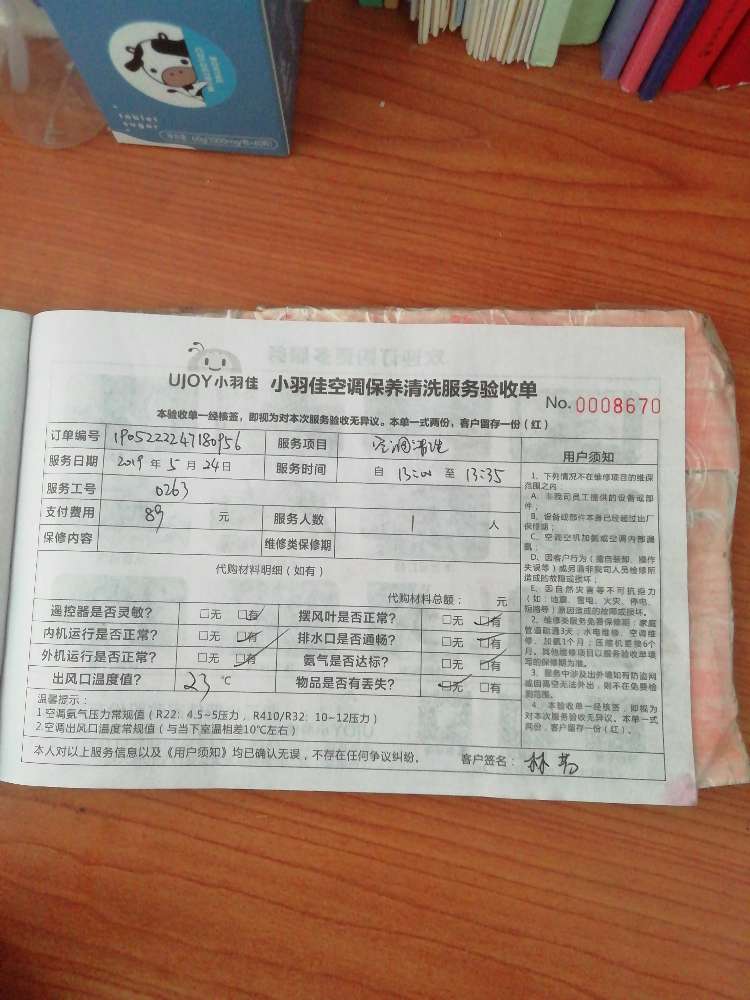 tablet
sugar
UJOY小羽佳 小羽佳空调保养清洗服务验收单 No. 0008670
本验收单一经核签，即视为对本次服务验收无异议。本单一式两份，客户留存一份（红）
订单编号 1905222247180956 服务项目 空调清洗
服务日期 2019 年 5 月 24 日 服务时间 自 13:00 至 13:35
服务工号 0263
支付费用 89 元 服务人数 1 人
保修内容 维修类保修期
代购材料明细（如有）
代购材料总额： 元
遥控器是否灵敏？ □无 □有 摆风叶是否正常？ □无 □有
内机运行是否正常？ □无 □有 排水口是否通畅？ □无 □有
外机运行是否正常？ □无 □有 氨气是否达标？ □无 □有
出风口温度值？ 23 ℃ 物品是否有丢失？ □无 □有
温馨提示：
1.空调氨气压力常规值（R22：4.5~5压力，R410/R32：10~12压力）
2.空调出风口温度常规值（与当下室温相差10℃左右）
本人对以上服务信息以及《用户须知》均已确认无误，不存在任何争议纠纷。 客户签名：
用户须知
1、下列情况不在维修项目的维保
范围之内：
A、非我司员工提供的设备或部
件；
B、设备或部件本身已经超过出厂
保修期；
C、空调空机加氨或空调内部漏
氨；
D、因客户行为（擅自装卸、操作
失误等）或另请非我司人员检修所
造成的故障或损坏；
E、因自然灾害等不可抗拒力
（如：地震、雷电、火灾、停电、
短路等）原因造成的故障或损坏。
2、维修类服务免责保修期：家庭
管道疏通3天；水电维修、空调维
修、加氨1个月；压缩机更换6个
月。其他维修项目以服务验收单填
写的保修期为准。
3、服务中涉及出外墙如有防盗网
或因高空无法外出，则不在免费检
测范围。
4、本验收单一经核签，即视为
对本次服务验收无异议。本单一式
两份，客户留存一份（红）。